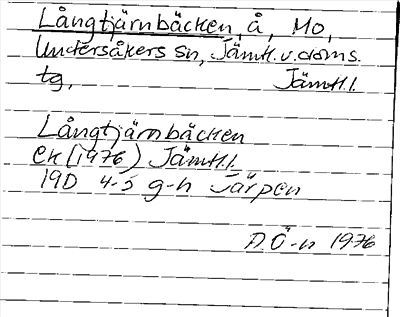 Långtjärnbäcken, å, Mo,
Undersåkers sn, Jämtl. v. doms.
tg, Jämtl. l.
Långtjärnbäcken
ek (1976) Jämtl. l.
19D 4-5 g-h Järpen
A.Ö-n 1976